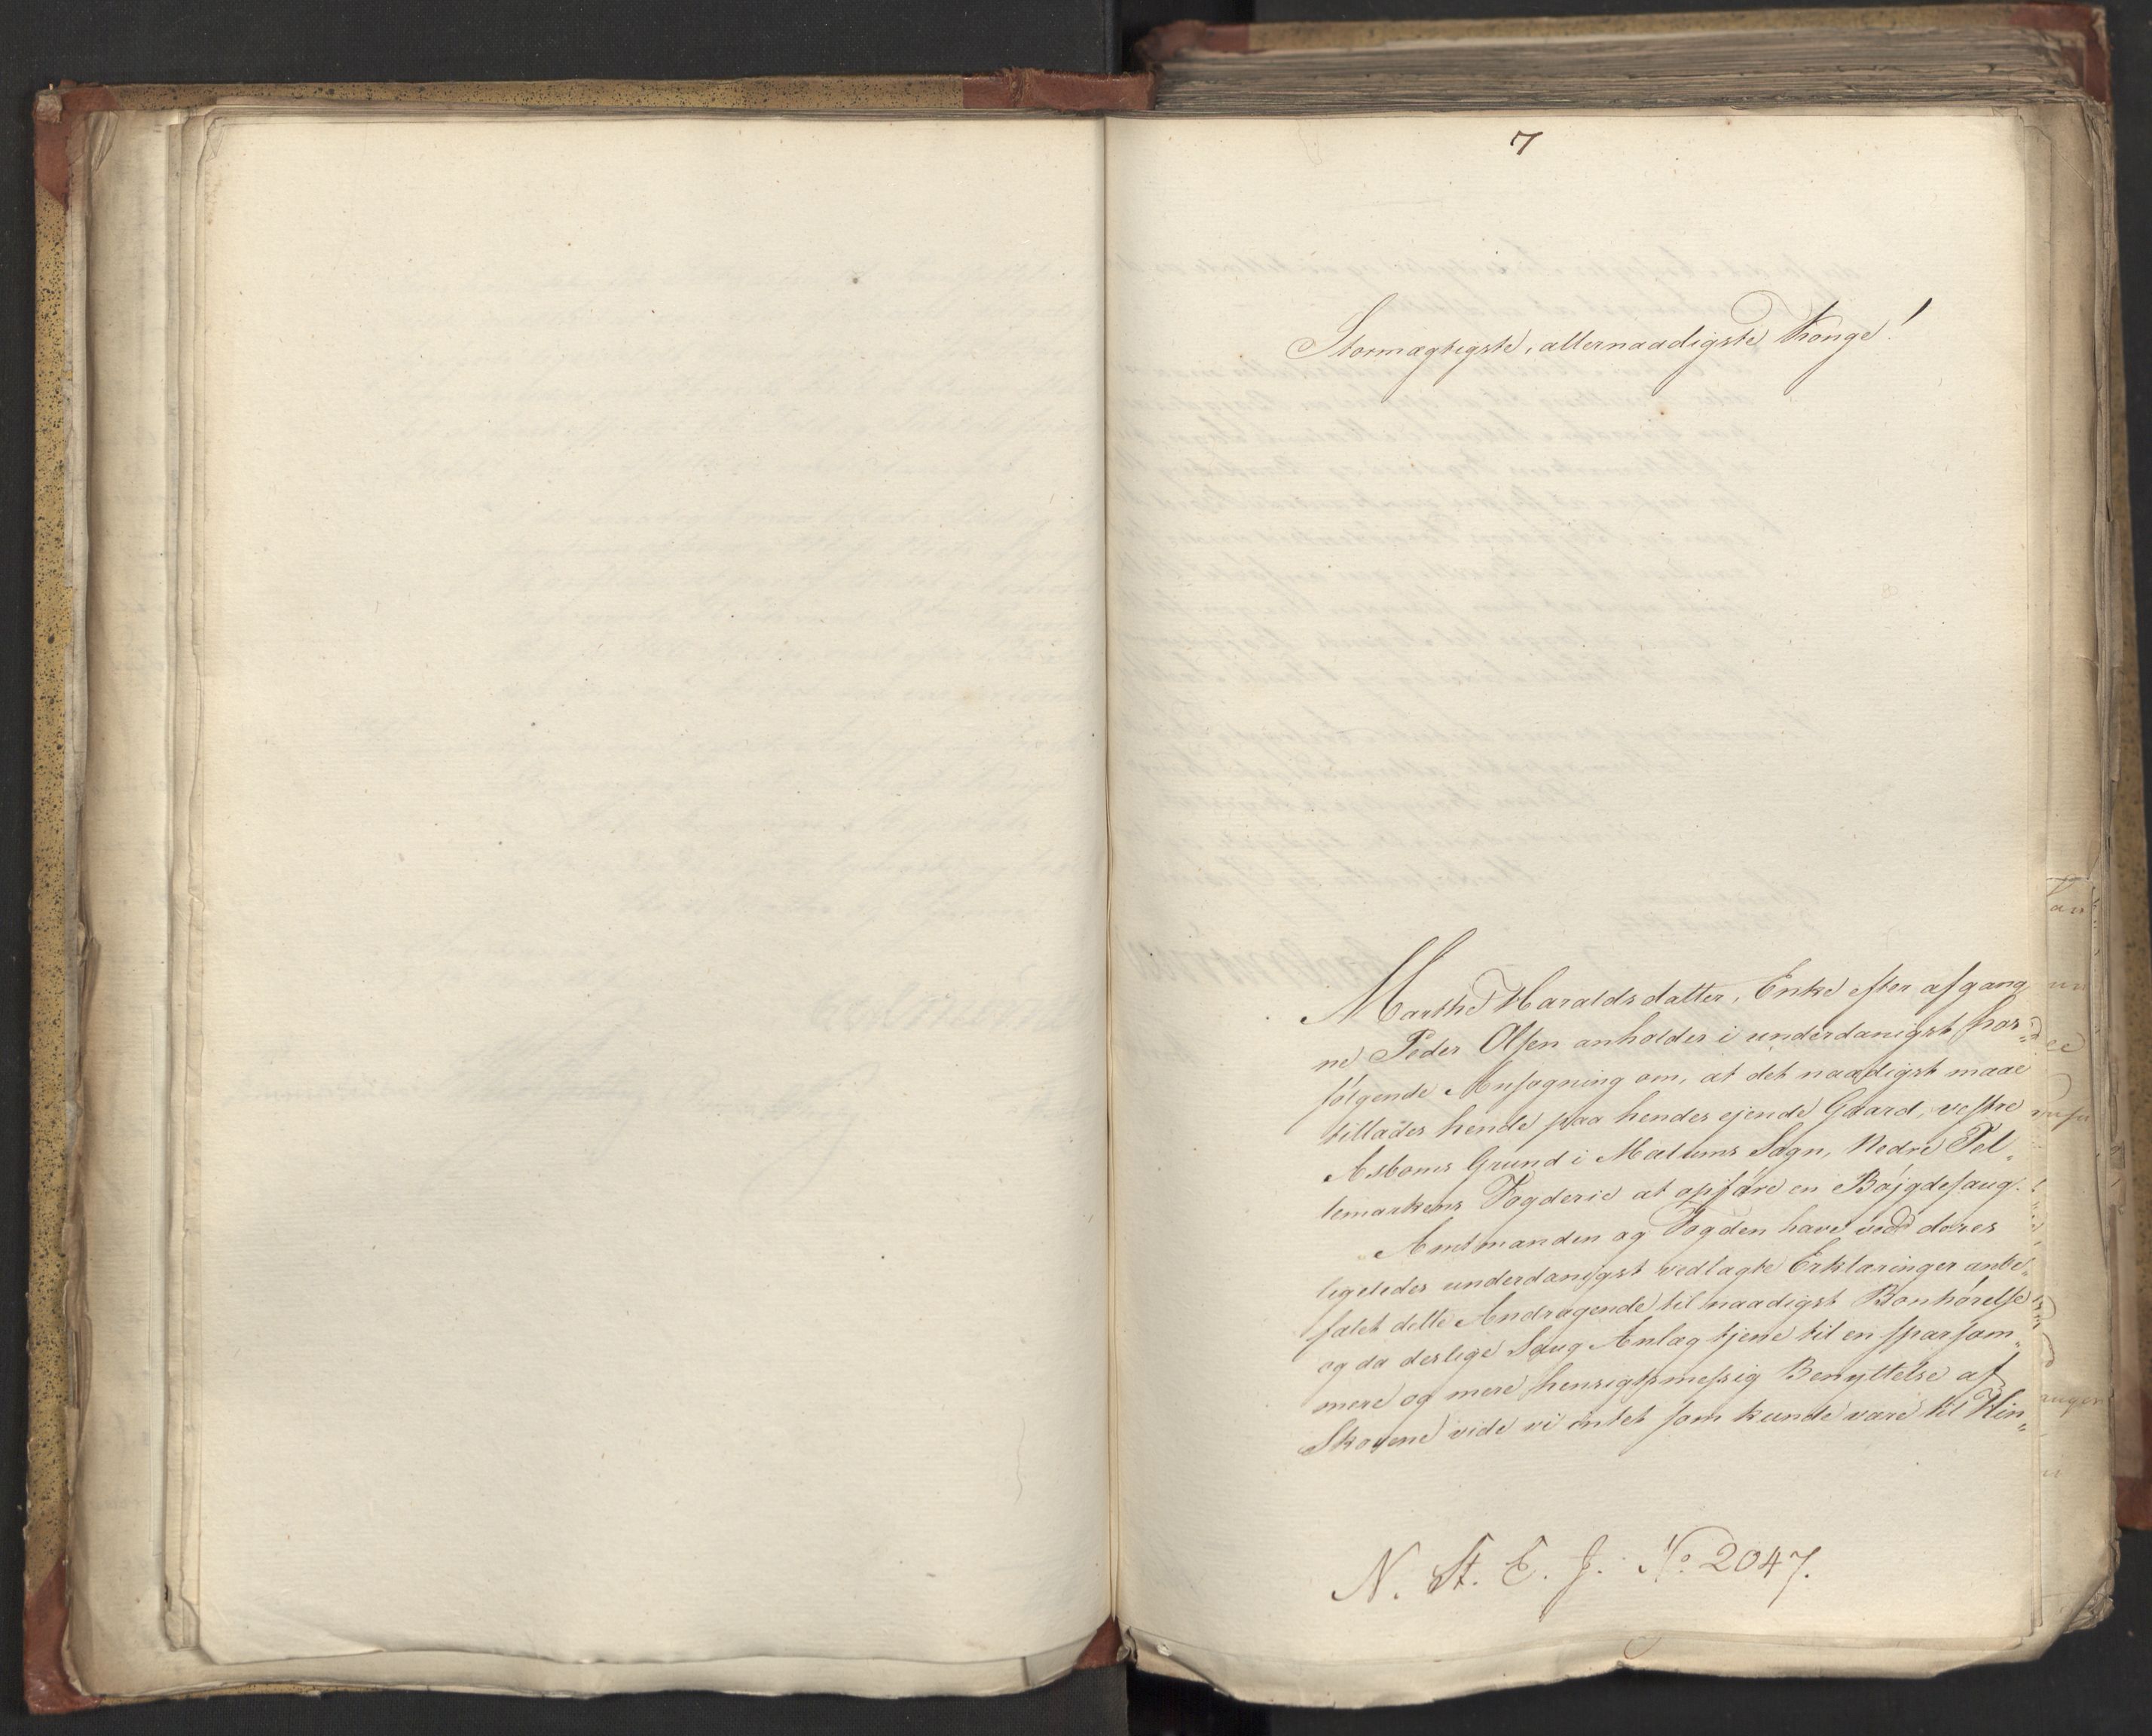 7
Stormægtigste, allernaadigste Konge!
Marthe Haraldsdatter, Enke efter afgang
ne Peder Olsen anholder i underdanigst hos-
følgende Ansøgning om, at det naadigst maae
tillades hende paa hendes ejende Gaard, vestre
Asboms Grund i Mælums Sogn, Nedre Tel-
lemarkens Fogderie at opføre en Bøjgdesaug.
Amtmanden og Fogden have ved deres
ligeledes underdanigst vedlagte Erklæringer anbe-
falet dette Andragende til naadigst Bønhørelse
og da deslige Saug Anlæg tjene til en sparsom-
mere og mere hensigtsmessig Benyttelse af
Skovene vide vi intet som kunde være til Hin-
N. St. E. J. No. 2047.